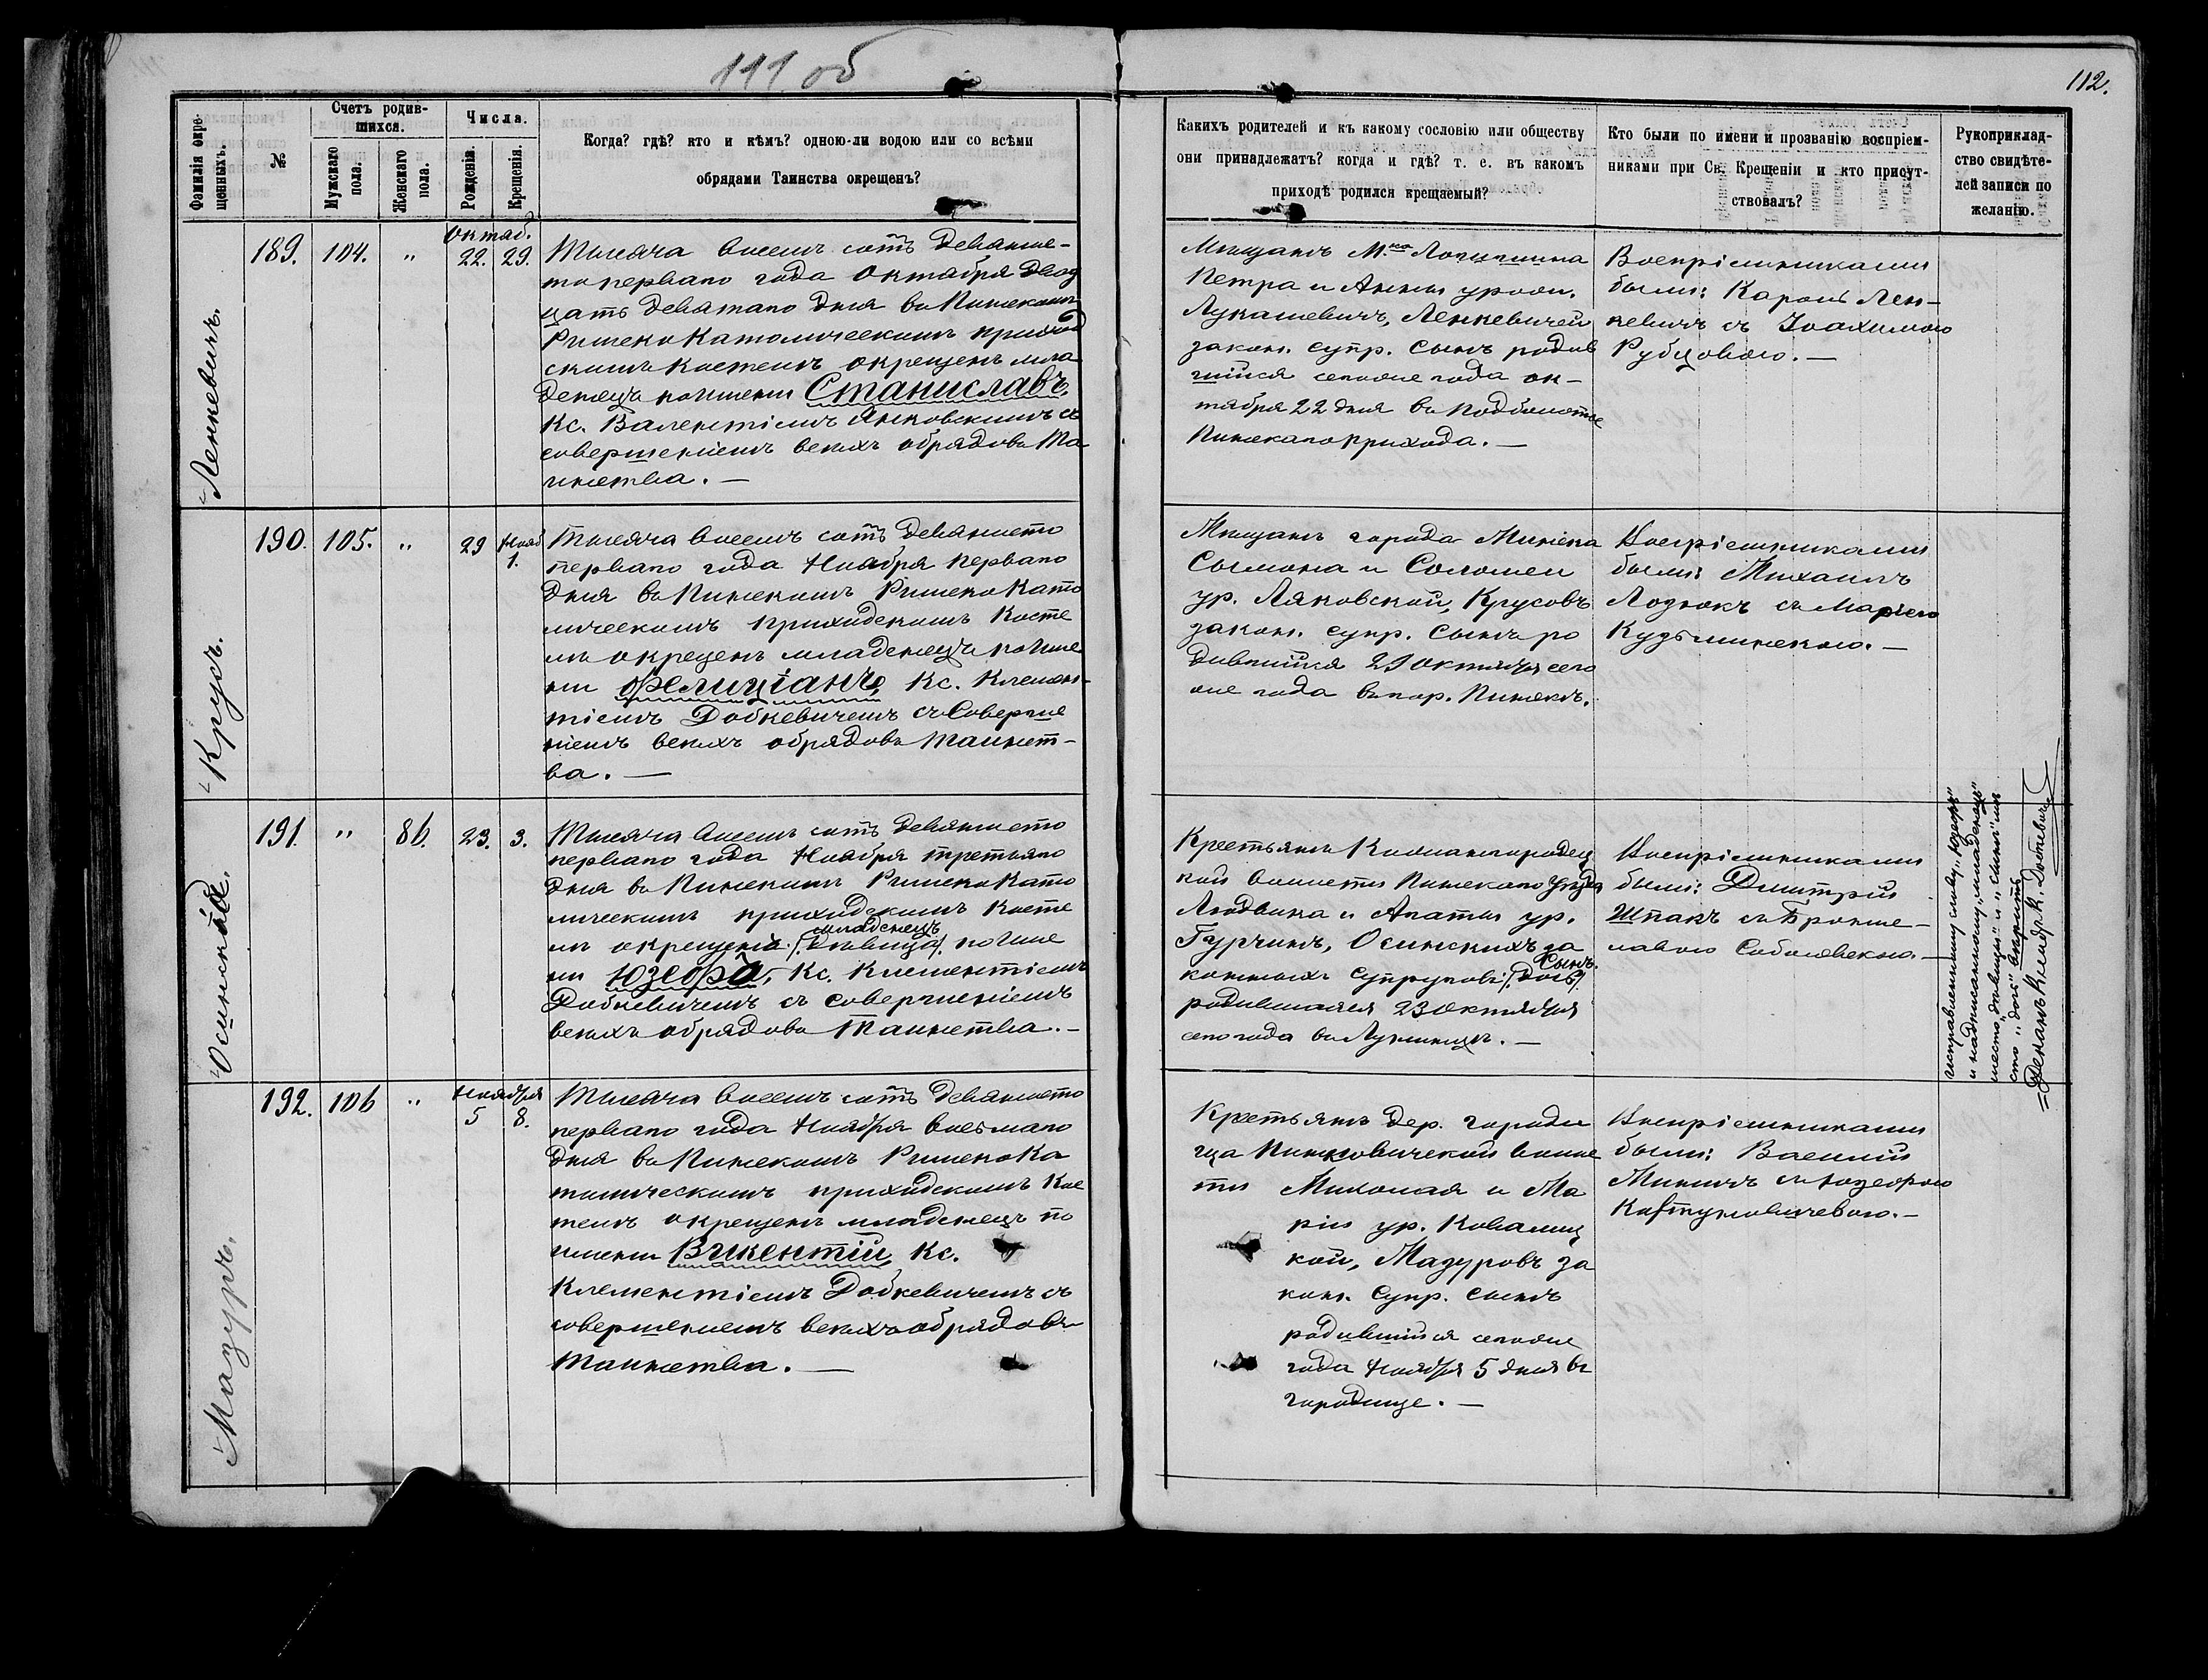 111 об
112.
Фамилія окре-
щенныхъ.
№.
Счетъ родив-
шихся.
Мужскаго
пола.
Женскаго
пола.
Числа.
Рожденія.
Крещенія.
Когда? гдѣ? кто и кѣмъ? одною-ли водою или со всѣми
обрядами Таинства окрещенъ?
Какихъ родителей и къ какому сословію или обществу
они принадлежатъ? когда и гдѣ? т. е. въ какомъ
приходѣ родился крещаемый?
Кто были по имени и прозванію воспріем-
никами при Св. Крещеніи и кто присут-
ствовалъ?
Рукоприклад-
ство свидѣте-
лей записи по
желанію.
Ленкевичъ.
189.
104.
"
Октяб.
22. 29.
Тысяча восемь сотъ девяно-
то перваго года Октября двад
цать девятаго дня въ Пинскомъ
Римско Католическомъ приход
скомъ костелѣ окрещенъ мла
денецъ по имени Станиславъ,
Кс. Валентіемъ Янковскимъ съ
совершеніемъ всѣхъ обрядовъ Та
инства. —
Мѣщанъ М.ка Логишина
Петра и Анны урож.
Лукашевичъ, Ленкевичей
закон. супр. сынъ родив
шійся сего же года ок-
тября 22 дня въ Подболотье
Пинскаго прихода. —
Воспріемниками
были: Кароль Лен-
кевичъ съ Іоахимою
Рубцовою. —
Крусъ.
190.
105.
"
29
Нояб
1.
Тысяча восемь сотъ девяносто
перваго года Ноября перваго
дня въ Пинскомъ Римско Като
лическомъ приходскомъ косте
лѣ окрещенъ младенецъ по име
ни Фелиціанъ, Кс. Клемен-
тіемъ Добкевичемъ съ соверше
ніемъ всѣхъ обрядовъ таинст-
ва. —
Мѣщанъ города Пинска
Сымона и Соломеи
ур. Ляковской, Крусовъ
закон. супр. сынъ ро
дившійся 29 октября сего
же года въ гор. Пинскѣ.
Воспріемниками
были: Михаилъ
Лозюкъ съ Маріею
Кузьминскою. —
Осинскій.
191.
"
86.
23. 3.
Тысяча восемь сотъ девяносто
перваго года Ноября третьяго
дня въ Пинскомъ Римско Като
лическомъ приходскомъ косте
младенецъ
лѣ окрещена (дѣвица) по име
ни Юзефъ, Кс. Клементіемъ
Добкевичемъ съ совершеніемъ
всѣхъ обрядовъ Таинства. —
Крестьянъ Кожангородец
кой волости Пинскаго уѣзда
Людвика и Агаты ур.
Гурчинъ, Осинскихъ за
сынъ.
конныхъ супруговъ (дочь)
родившаяся 23 октября
сего года въ Лунинцѣ. —
Воспріемниками
были: Дмитрій
Шпакъ съ Брони-
лавою Соболевскою —
Исправленному слову „Юзефъ"
и надписанному „младенецъ"
вмѣсто „дѣвица" и „сынъ" вмѣ
сто „дочь" вѣрить
Деканъ Ксендзъ К. Достевичъ
Мазуръ.
192.
106
"
Ноября
5 8.
Тысяча восемь сотъ девяносто
перваго года Ноября восьмаго
дня въ Пинскомъ Римско Ка
толическомъ приходскомъ кос
телѣ окрещенъ младенецъ по
имени Викентій, Кс.
Клементіемъ Добкевичемъ съ
совершеніемъ всѣхъ обрядовъ
Таинства. —
Крестьянъ дер. Городи
ща Пинковичской волос
ти Миколая и Ма
ріи ур. Ковалиц
кой, Мазуровъ за
кон. супр. сынъ
родившійся сего же
года Ноября 5 дня въ
городище. —
Воспріемниками
были: Василій
Миничъ съ Юзефою
Кавтуновичевою. —